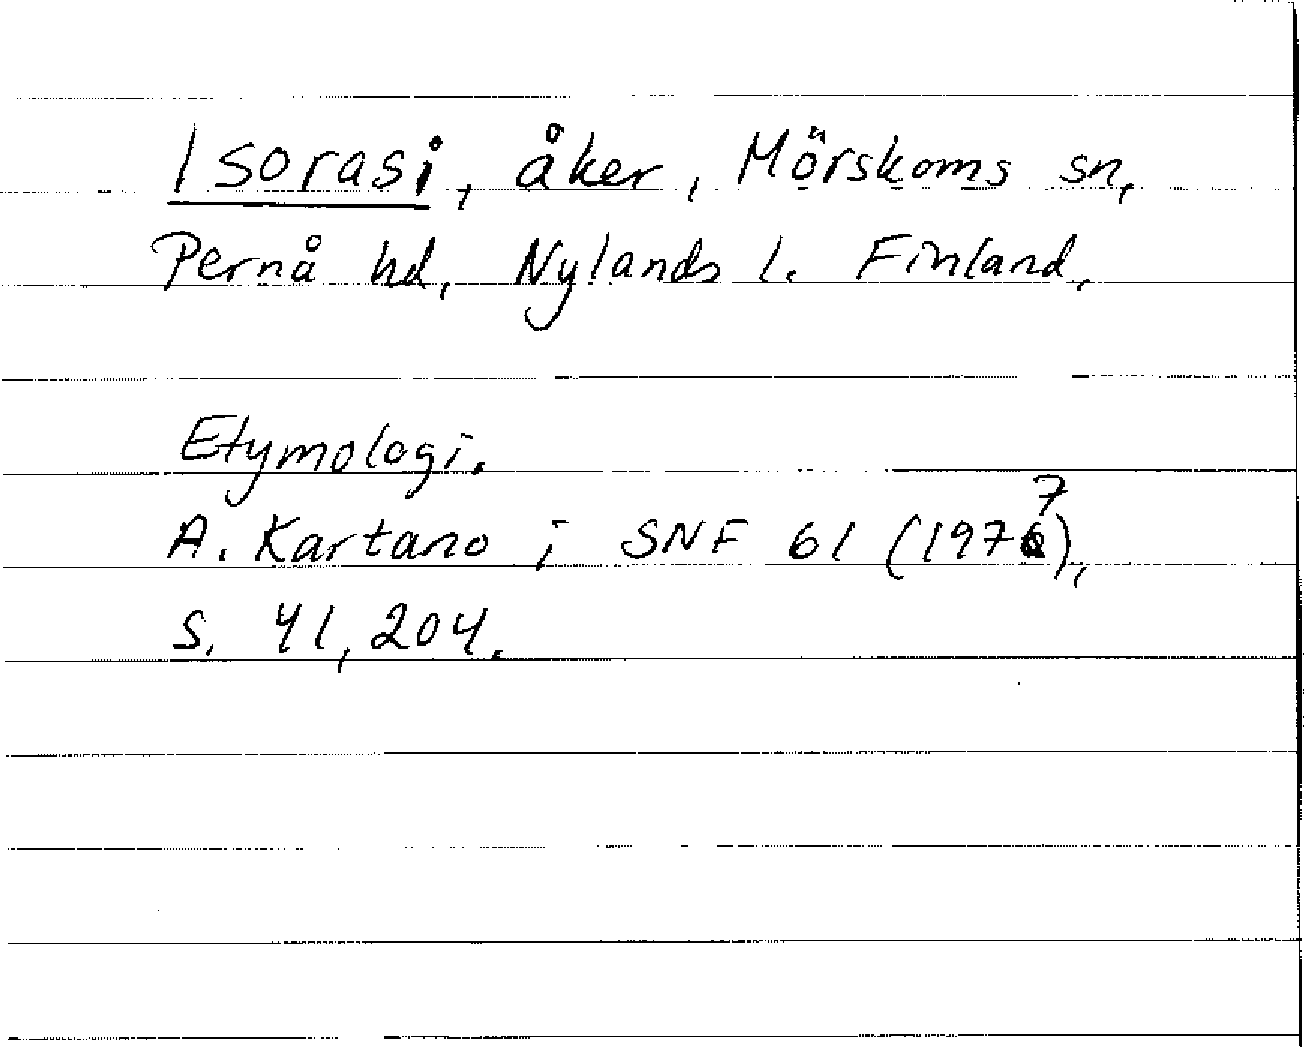 Isorasi, åker, Mörskoms sn,
Pernå hd, Nylands l. Finland.
Etymologi.
A. Kartano i SNF 61 (1977),
s. 41, 204.